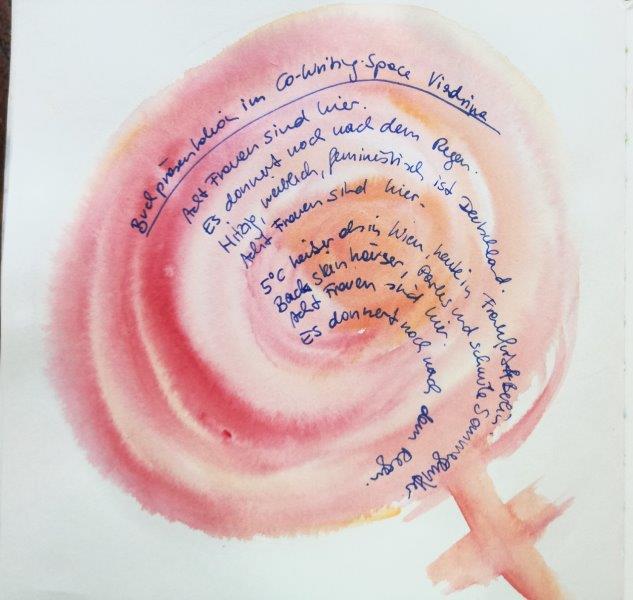 Buchpräsentation im Co-Writing-Space Viadrina
Acht Frauen sind hier.
Es donnert noch nach dem Regen.
Hitzig, weiblich, feministisch ist Deutschland.
Acht Frauen sind hier.
5°C heißer als in Wien, heute in Frankfurt
Backsteinhäuser, Parks und schmale
Acht Frauen sind hier.
Es donnert noch nach dem Regen.